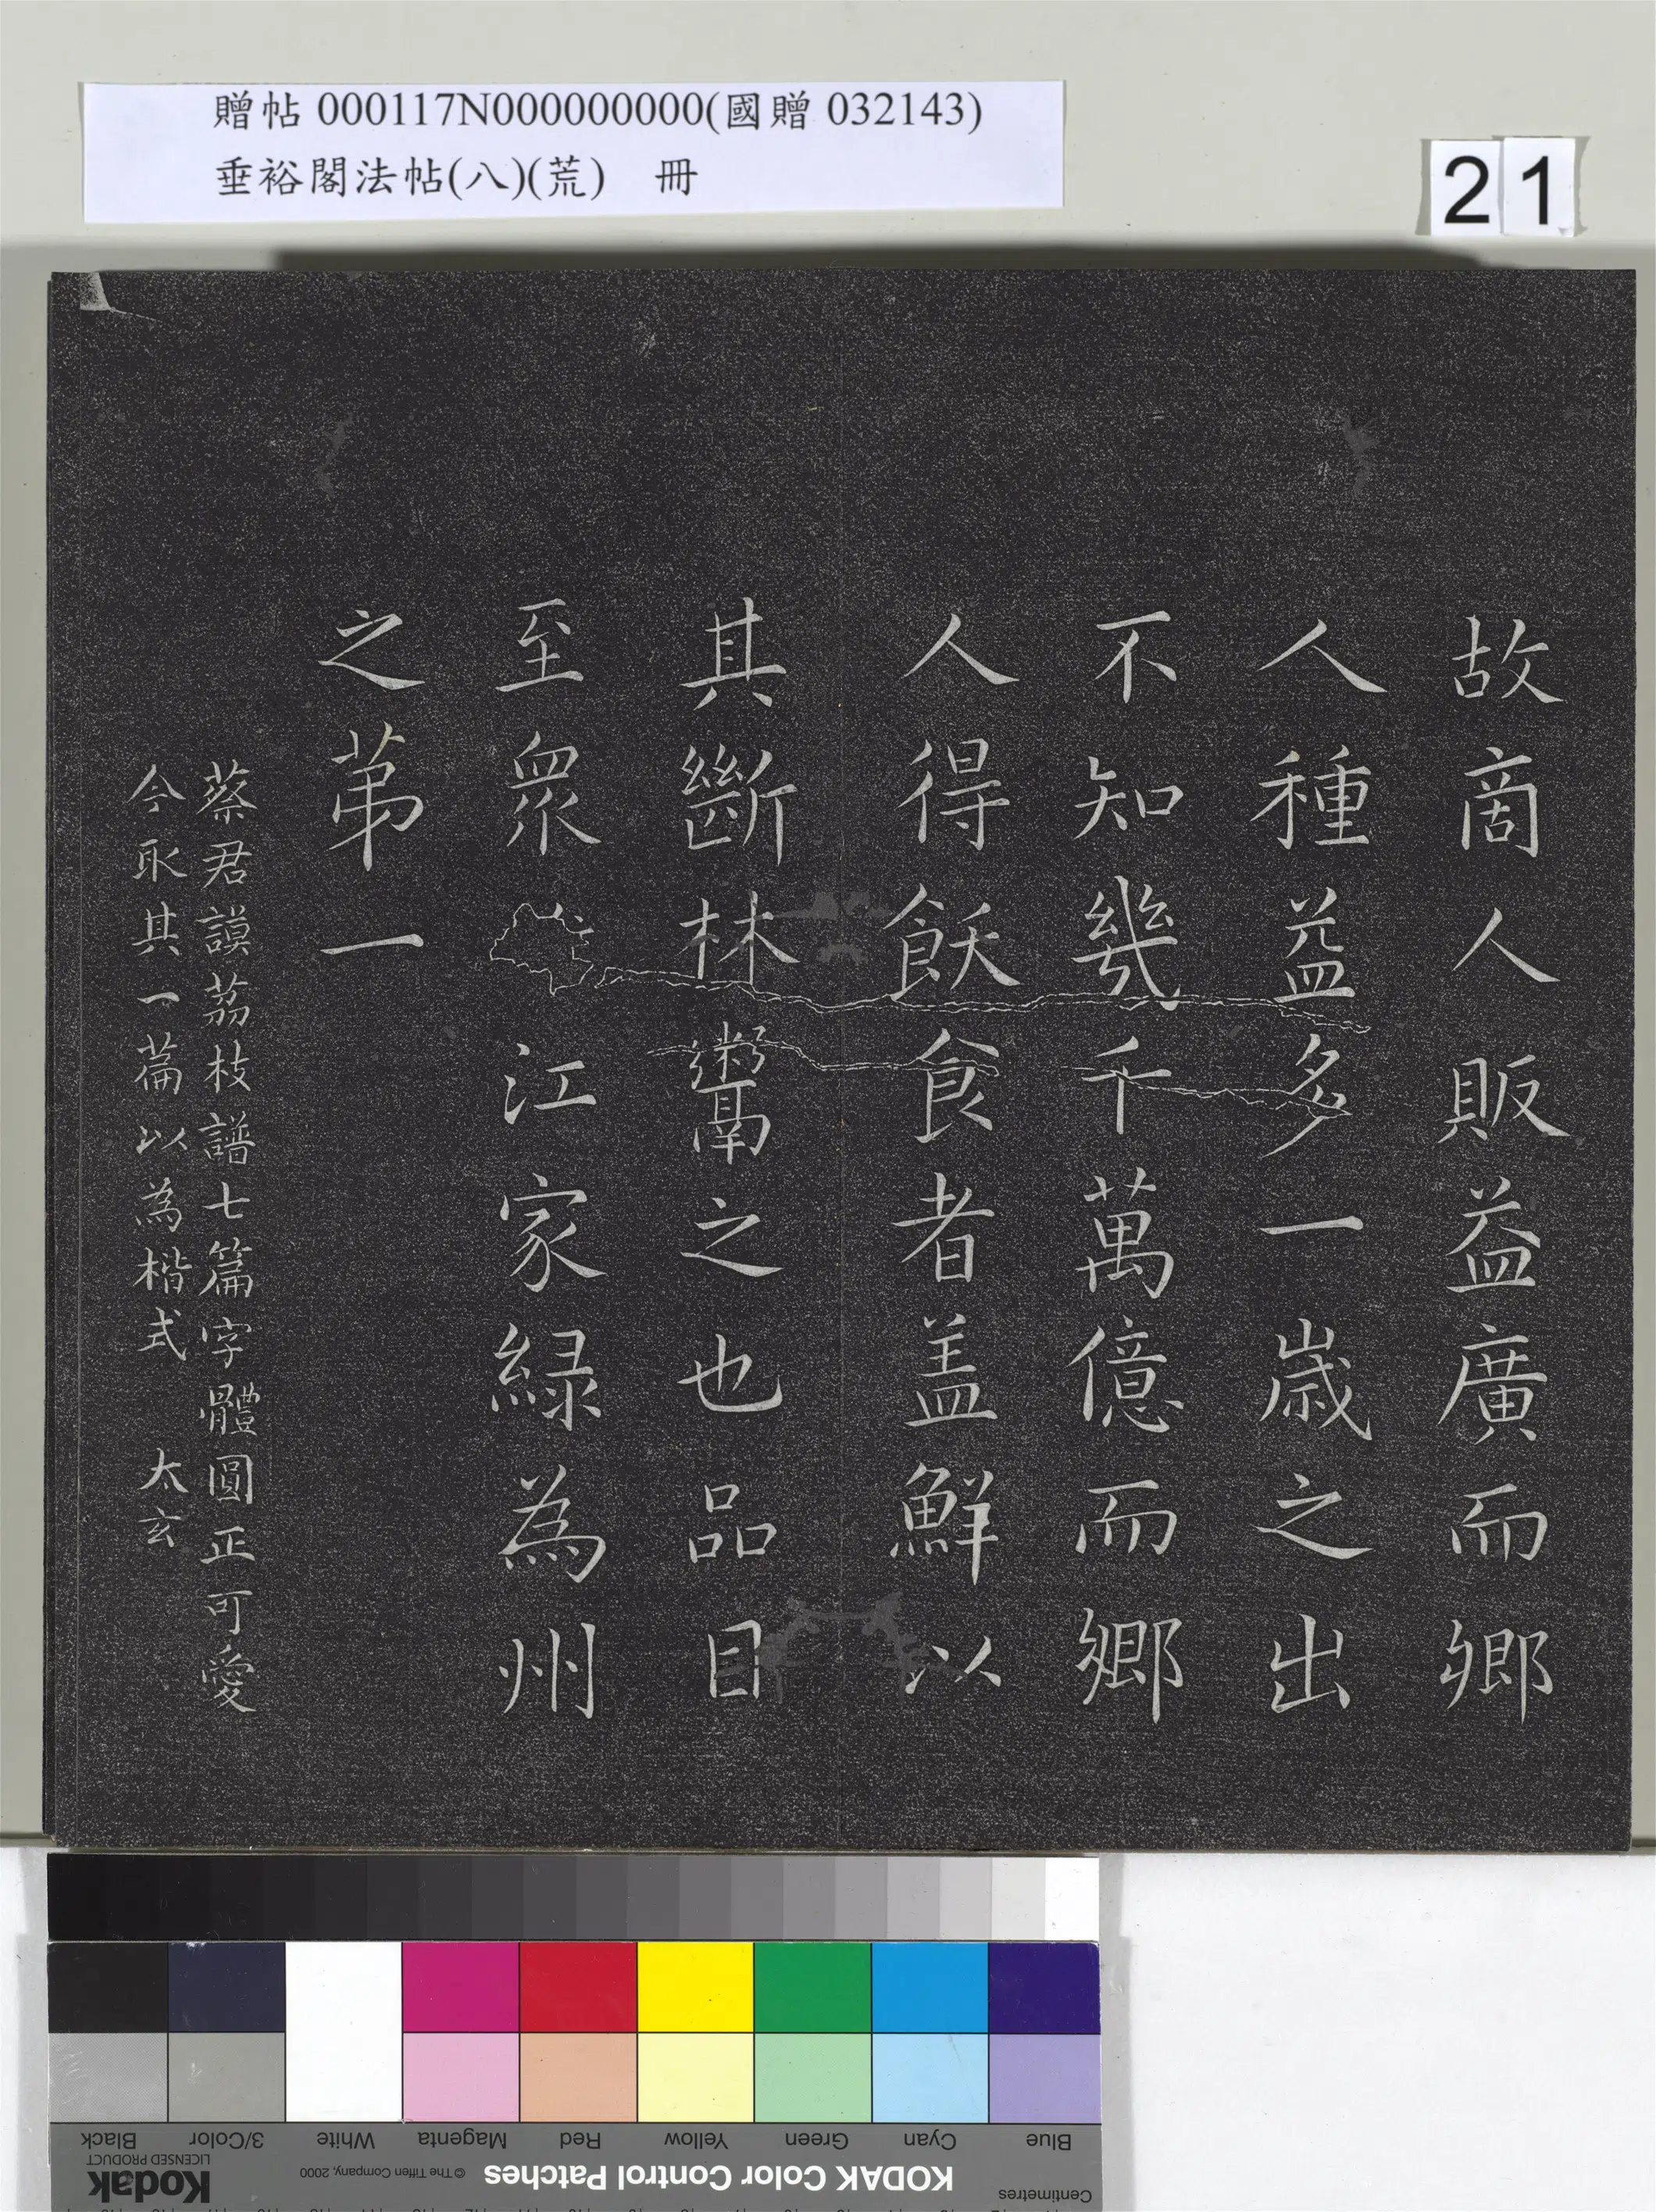 贈帖 000117N000000000(國贈 032143)
垂裕閣法帖(八)(荒) 冊
21
故商人販益廣而鄉
人種益多一歲之出
不知幾千萬億而鄉
人得飫食者盖鮮以
其斷林鬻之也品目
至眾 江家緑為州
之苐一
蔡君謨茘枝譜七篇字體圓正可愛
今取其一篇以為楷式 太玄
Blue Cyan Green Yellow Red Magenta White 3/Color Black
Centimetres KODAK Color Control Patches © The Tiffen Company, 2000 Kodak
LICENSED PRODUCT